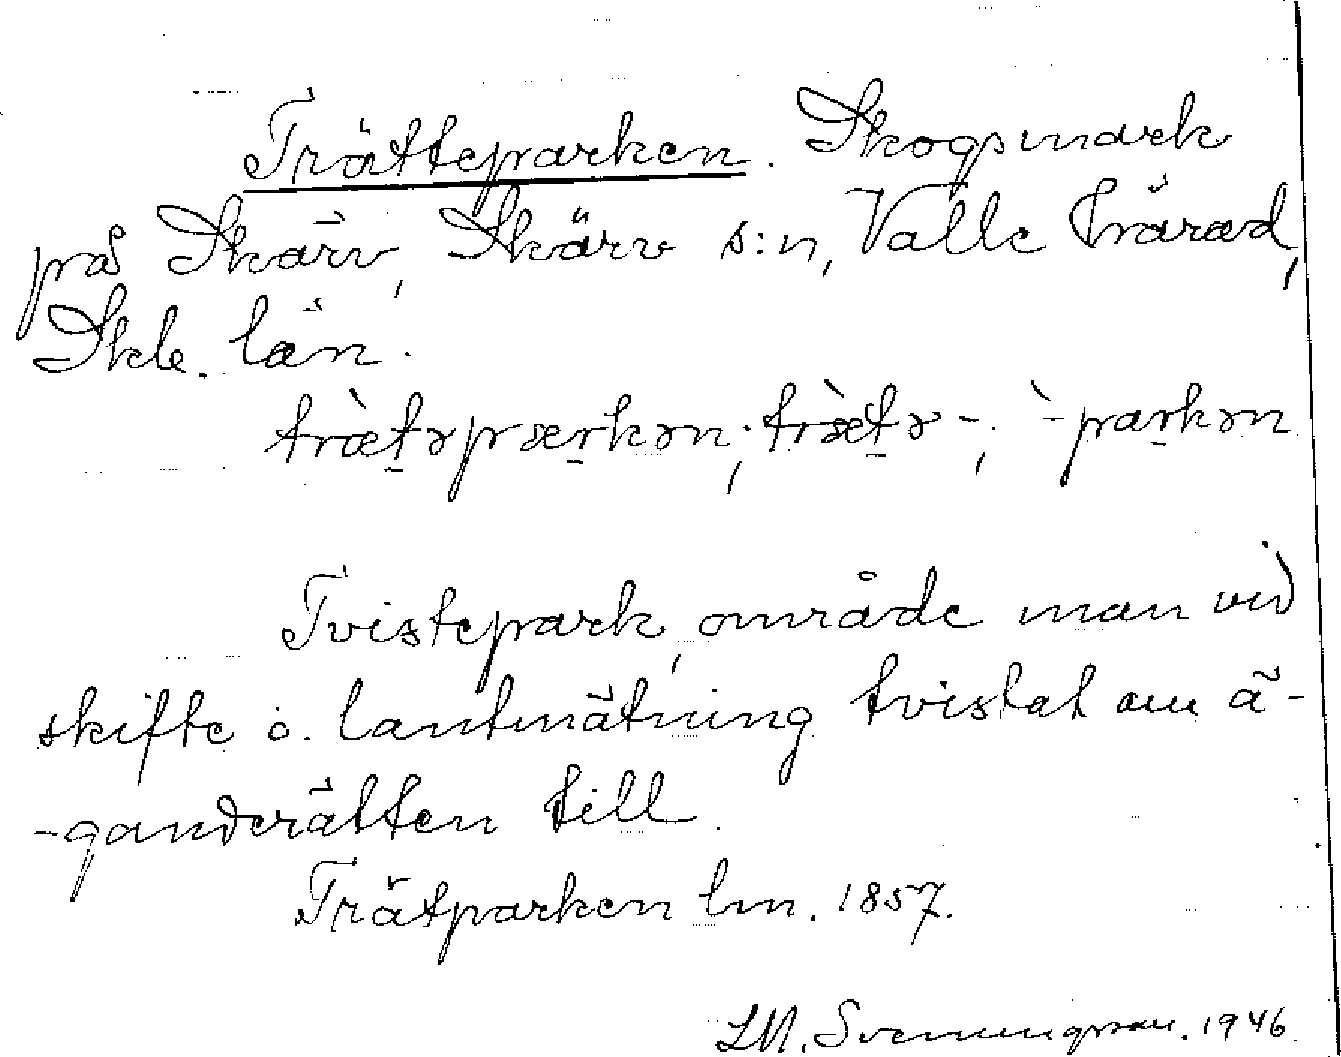 Trätteparken. Skogsmark
på Skärv, Skärv s:n, Valle härad,
Skb. län.
træ̀tǝpærkǝn; træ̀tǝ-; `-parkǝn
Tvistepark, område man vid
skifte o. lantmätning tvistat om ä-
-ganderätten till.
Trätparken lm. 1857.
LM. Svenungsson. 1946